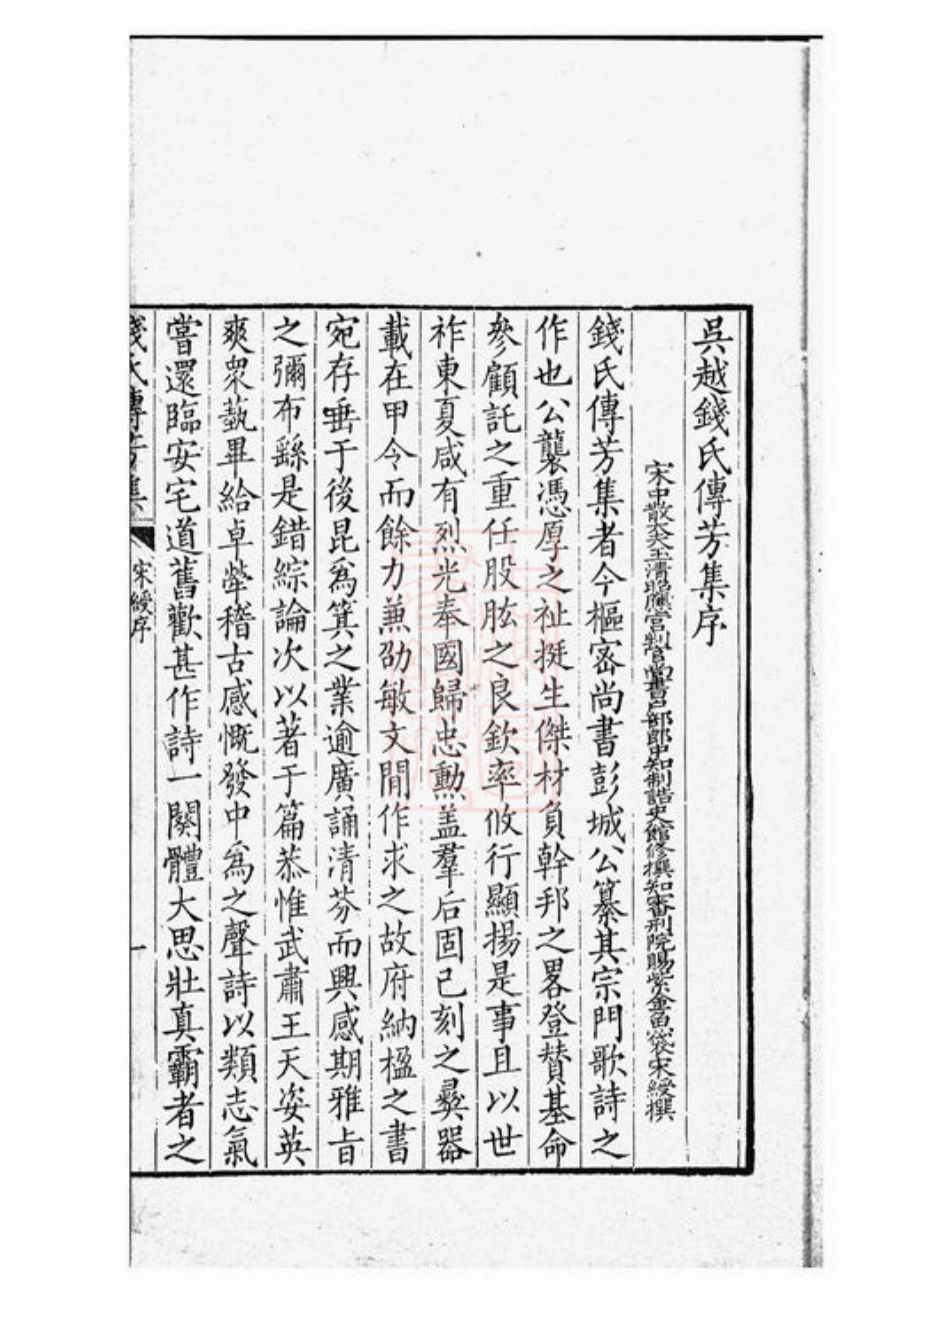 吳越錢氏傳芳集序
宋中散大夫玉清昭應宮判官尚書戶部郎中知制誥史館修撰知審刑院賜紫金魚袋宋綬撰
錢氏傳芳集者今樞密尚書彭城公纂其宗門歌詩之
作也公襲憑厚之祉挺生傑材負幹邦之畧登贊基命
參顧託之重任股肱之良欽率攸行顯揚是事且以世
祚東夏咸有烈光奉國歸忠勳盖羣后固已刻之彝器
載在甲令而餘力兼劭敏文間作求之故府納楹之書
宛存垂于後昆為箕之業逾廣誦清芬而興感期雅旨
之彌布繇是錯綜論次以著于篇恭惟武肅王天姿英
爽眾藝畢給卓犖稽古感慨發中為之聲詩以類志氣
嘗還臨安宅道舊歡甚作詩一闋體大思壯真霸者之
錢氏傳芳集
宋綬序
一